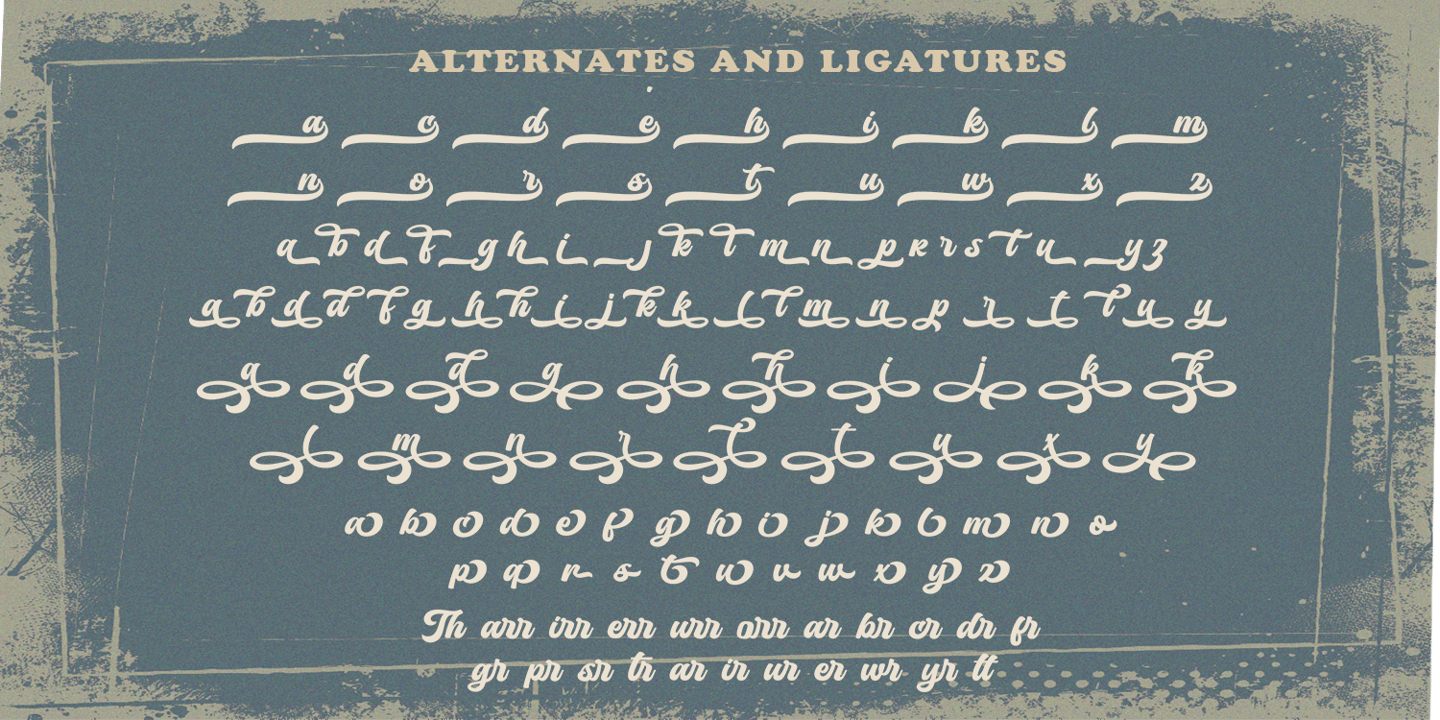 ALTERNATES AND LIGATURES
a c d e h i k l m
n o r s t u w x z
a b d f g h i j k l m n p k r s t u y z
a b d d f g h h i j k k l l m n p r t t u y
a d d g h h i j k k
l m n r t t u x y
a b c d e f g h i j k l m n o
p q r s t u v w x y z
Th arr irr err urr orr ar br cr dr fr
gr pr sr tr ar ir ur er wr yr tt